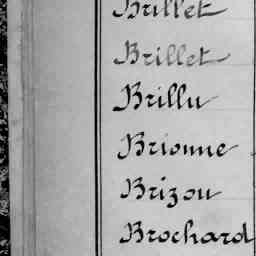 Brillet
Brillet
Brillu
Brionne
Brizou
Brochard